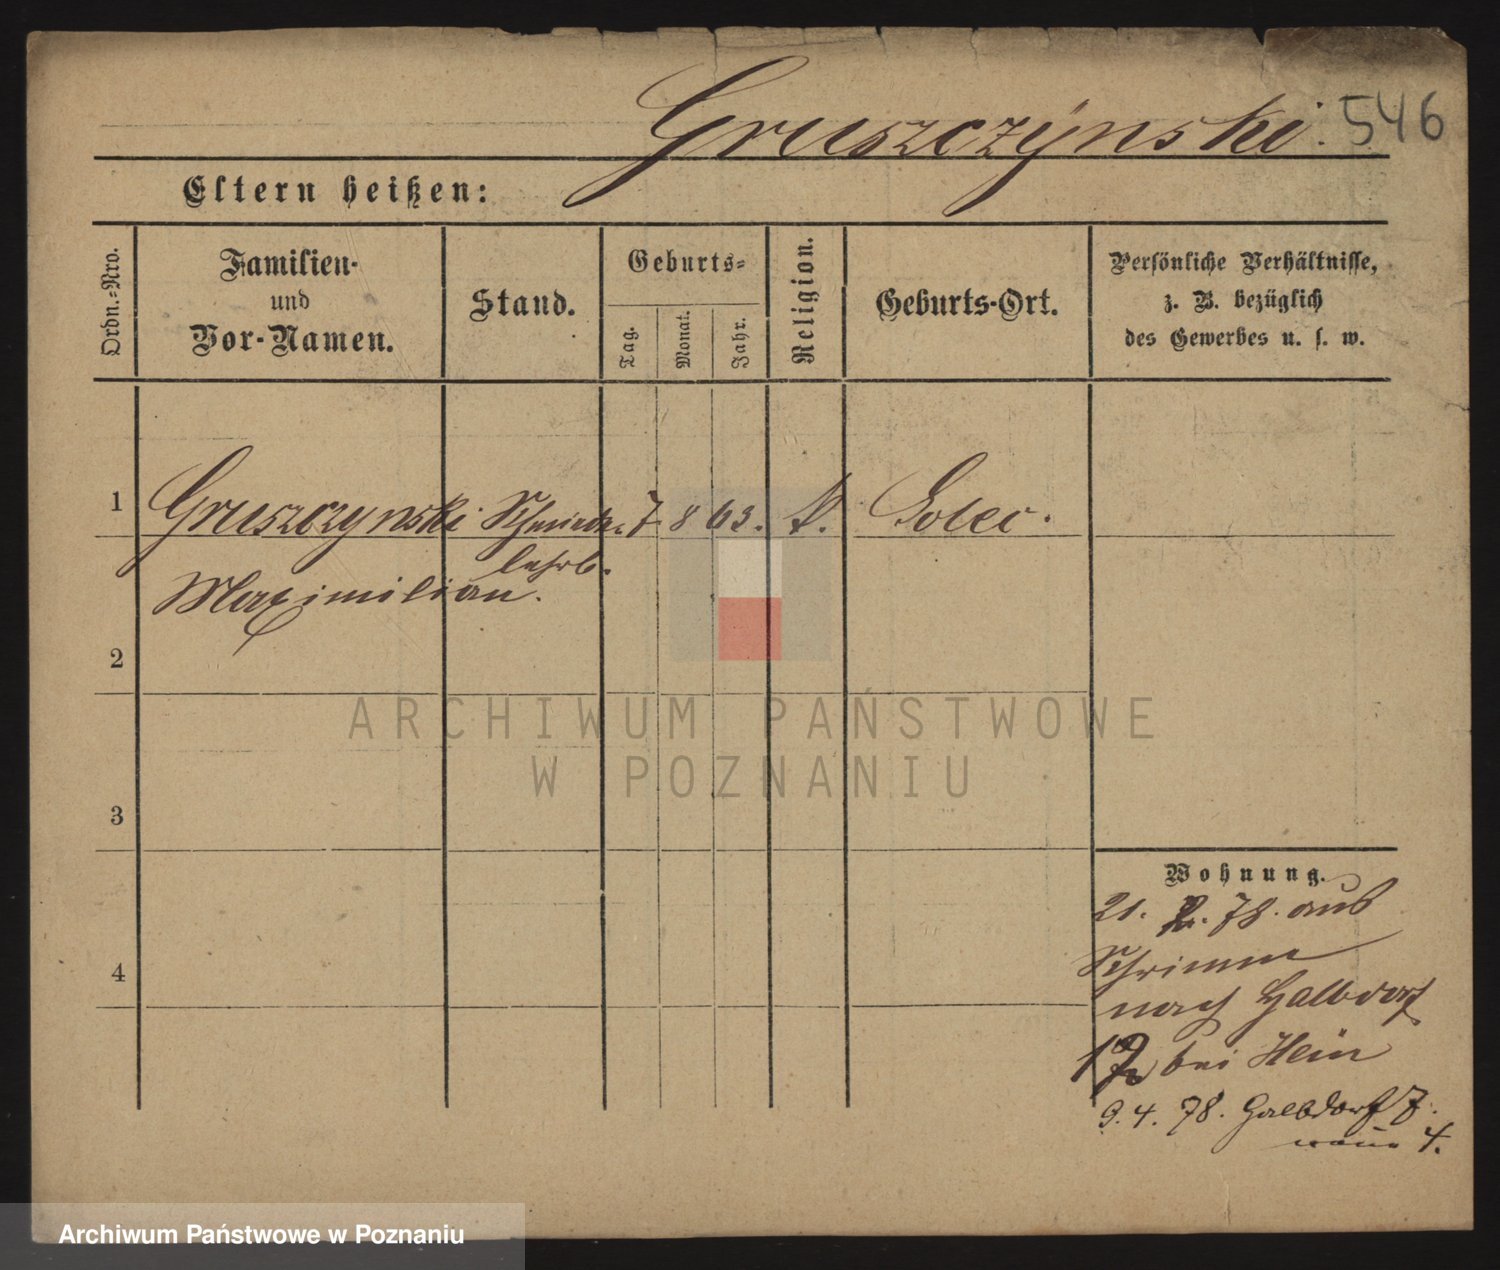 Gruszczynski. 546
Eltern heißen:
Ordn.-Nro.
Familien-
und
Vor-Namen.
Stand.
Geburts-
Tag.
Monat.
Jahr.
Religion.
Geburts-Ort.
Persönliche Verhältnisse,
z. B. bezüglich
des Gewerbes u. s. w.
1 Gruszczynski Schmiede- 7 8 63. k. Golec.
lehrl.
Maximilian.
2
3
4
ARCHIWUM PAŃSTWOWE
W POZNANIU
Wohnung.
21. 2. 78. aus
Schrimm
nach Halbdorf
bei Hein
9. 4. 78. Halbdorf 7.
4.
Archiwum Państwowe w Poznaniu